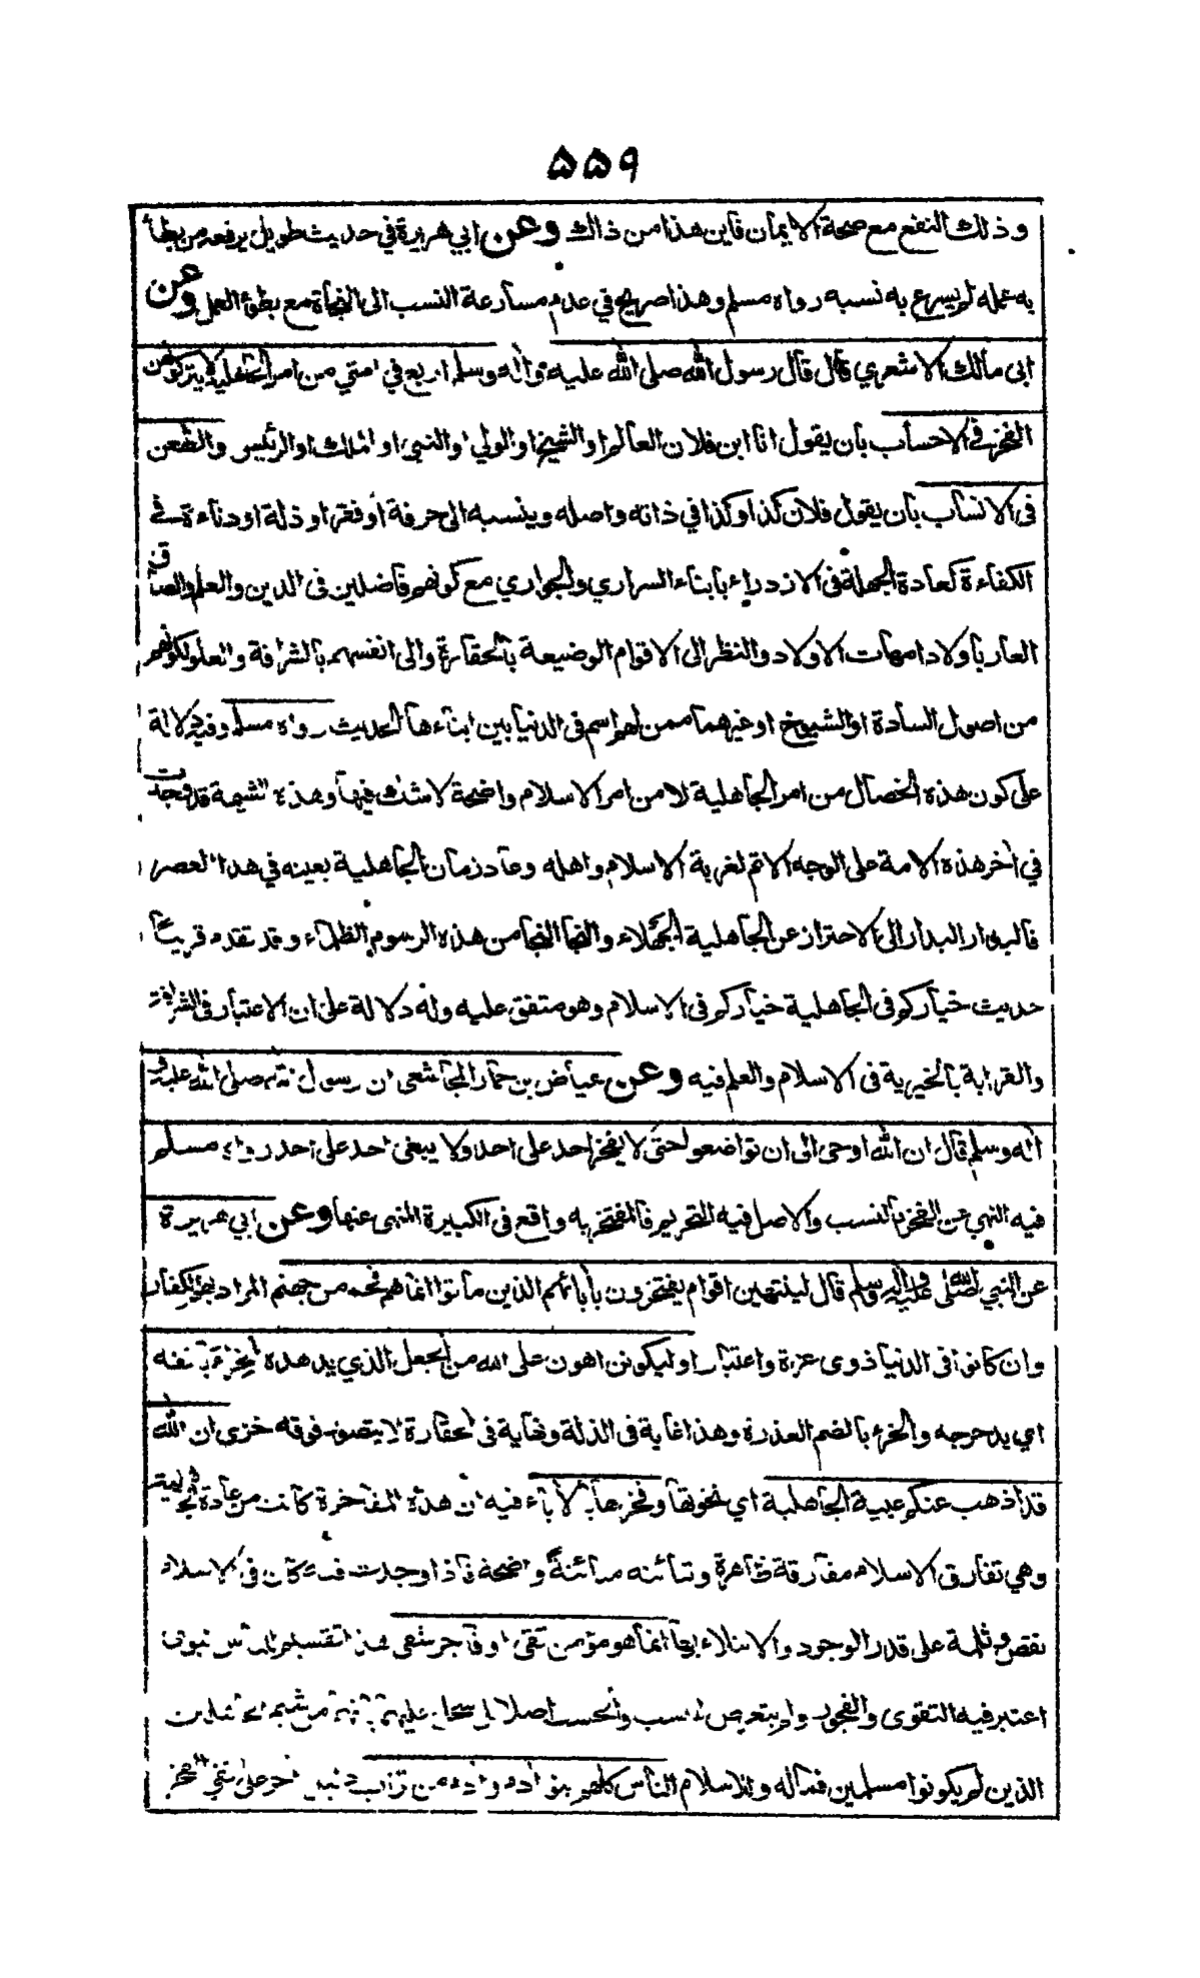 ۵۵۹
وذلك النفع مع صحة الايمان فاين هذا من ذاك وعن ابي هريرة في حديث طويل يرفعه من بطأ
به عمله لم يسرع به نسبه رواه مسلم وهذا صريح في عدم مسارعة النسب الى النجاة مع بطؤ العمل وعن
ابى مالك الاشعري قال قال رسول الله صلى الله عليه واله وسلم اربع في امتي من امر الجاهلية لا يتركونهن
الفخر في الاحساب بان يقول انا ابن فلان العالم او الشيخ او الولي او النبي او الملك او الرئيس والطعن
فى الانساب بان يقول فلان كذا وكذا في ذاته واصله وينسبه الى حرفة او فقر او ذلة او دناءة في
الكفاءة كعادة الجهلة فى الازدراء بابناء السراري والجواري مع كونهم فاضلين فى الدين والعلم والصاق
العار باولاد امهات الاولاد والنظر الى الاقوام الوضيعة بالحقارة والى انفسهم بالشرافة والعلو لكونهم
من اصول السادة او الشيوخ او غيرهما ممن لهم اسم فى الدنيا بين ابناءها الحديث رواه مسلم وفيه دلالة
على كون هذه الخصال من امر الجاهلية لا من امر الاسلام واضحة لا شك فيها وهذه الشيمة قد وجدت
في اخر هذه الامة على الوجه الاتم لغربة الاسلام واهله وعاد زمان الجاهلية بعينه في هذا العصر
فالبدار البدار الى الاحتراز عن الجاهلية الجهلاء والنجا النجا من هذه الرسوم الظلماء وقد تقدم قريبا
حديث خياركم فى الجاهلية خياركم فى الاسلام وهو متفق عليه وله دلالة على ان الاعتبار فى الشرافة
والقرابة بالخيرية فى الاسلام والعلم فيه وعن عياض بن حمار المجاشعى ان رسول الله صلى الله عليه و
اله وسلم قال ان الله اوحى الى ان تواضعوا حتى لا يفخر احد على احد ولا يبغى احد على احد رواه مسلم
فيه النهي عن الفخر بالنسب والاصل فيه التحريم فالمفتخر به واقع فى الكبيرة المنهى عنها وعن ابي هريرة
عن النبي صلى الله عليه واله وسلم قال لينتهين اقوام يفتخرون بآبائهم الذين ماتوا انما هم فحم من جهنم المراد بهم الكفار
وان كانوا فى الدنيا ذوى عزة واعتبار او ليكونن اهون على الله من الجعل الذي يدهده الخرء بانفه
اي يدحرجه والخرء بالضم العذرة وهذا غاية فى الذلة ونهاية فى الحقارة لا يتصور فوقه خزى ان الله
قد اذهب عنكم عبية الجاهلية اي نخوتها وفخرها بالاباء فيه ان هذه المفاخرة كانت من عادة الجاهلية
وهي تفارق الاسلام مفارقة ظاهرة وتبائنه مبائنة واضحة فاذا وجدت فيه كان فى الاسلام
نقص وثلمة على قدر الوجود والابتلاء بها انما هو مؤمن تقى او فاجر شقى هذا تقسيم للناس نبوى
اعتبر فيه التقوى والفجور ولم يتعرض للنسب والحسب اصلا
الذين لم يكونوا مسلمين فماله وللاسلام الناس كلهم بنو ادم وادم من تراب